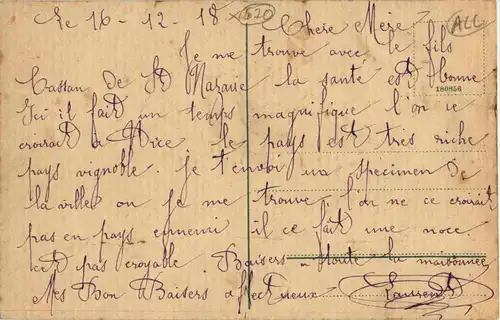 Le 16 - 12 - 18 520 Chere Mere ALL
Je me trouve avec le fils
Cassan de St Nazaire la santé est bonne
180856
Ici il fait un temps magnifique l'on ce
croirait a Nice le pays est très riche
pays vignoble. je t'envoi un specimen de
la ville ou je me trouve. l'on ne ce croirait
pas en pays ennemi il ce fait une noce
cest pas croyable Baisers a toute la maisonnée
Mes Bon Baisers affectueux Laurent